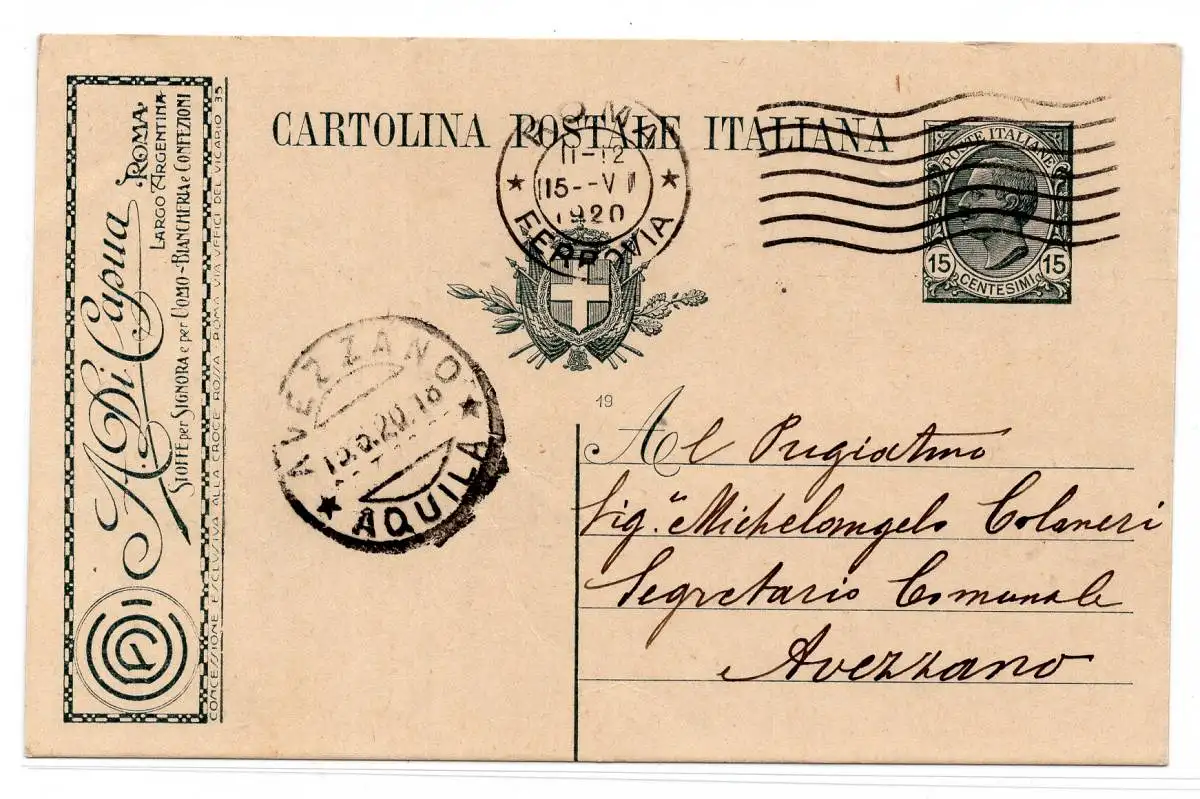 CARTOLINA POSTALE ITALIANA
ROMA
11-12
15--VI
1920
FERROVIA
POSTE ITALIANE
15 15
CENTESIMI
A. Di Capua
ROMA
LARGO ARGENTINA
STOFFE per SIGNORA e per UOMO-BIANCHERIA e CONFEZIONI
CONCESSIONE ESCLUSIVA ALLA CROCE ROSSA ROMA VIA UFFICI DEL VICARIO 35
AVEZZANO
15.6.20.18
AQUILA
19
Al Pregiatmo
Sig.r Michelangelo Colaneri
Segretario Comunale
Avezzano